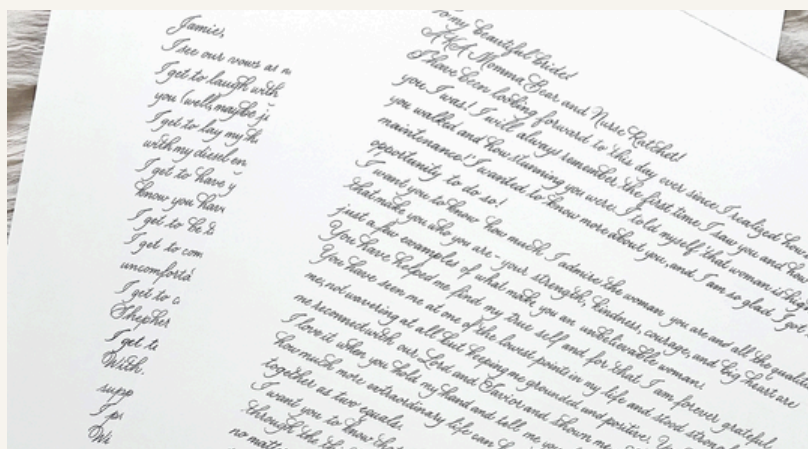 Jamie,
I see our vows as
I get to laugh with
you (well, maybe
I get to lay my
with my diesel
I get to have
know you have
I get to be
I get to
I get to
I get
With.
I
to my beautiful bride!
AKA Momma Bear and Nurse Ratchet!
I have been looking forward to this day ever since I realized how
you I was! I will always remember the first time I saw you and how
you walked and how stunning you were. I told myself 'that woman is high
maintenance!' I wanted to know more about you, and I am so glad I got
opportunity to do so!
I want you to know how much I admire the woman you are and all the
that make you who you are - your strength, kindness, courage, and big heart are
just a few examples of what make you an unbelievable woman.
You have helped me find my true self and for that I am forever grateful.
You have seen me at one of the lowest points in my life and stood
me, not wavering at all but keeping me grounded and positive.
me reconnect with our Lord and Savior and shown me
I love it when you hold my hand and tell me you
how much more extraordinary life can
together as two equals.
I want you to know that
through the
no